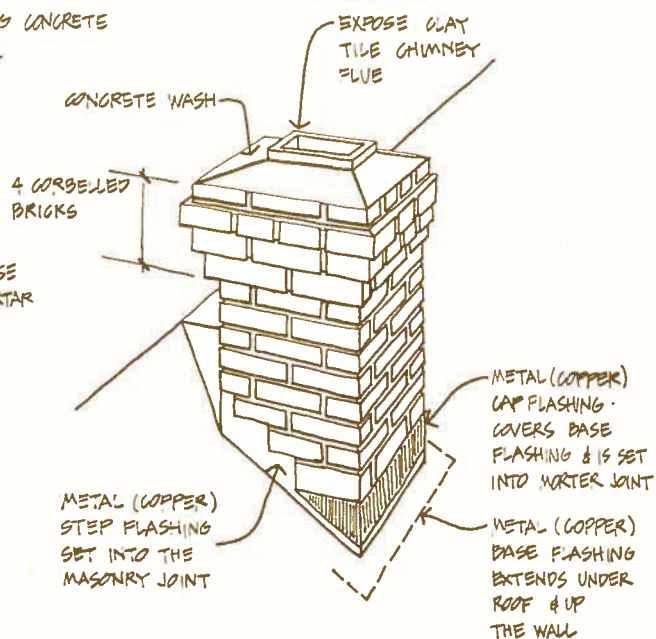 CONCRETE
EXPOSE CLAY
TILE CHIMNEY
FLUE
CONCRETE WASH
4 CORBELLED
BRICKS
METAL (COPPER)
CAP FLASHING.
COVERS BASE
FLASHING & IS SET
INTO MORTER JOINT
METAL (COPPER)
STEP FLASHING
SET INTO THE
MASONRY JOINT
METAL (COPPER)
BASE FLASHING
EXTENDS UNDER
ROOF & UP
THE WALL